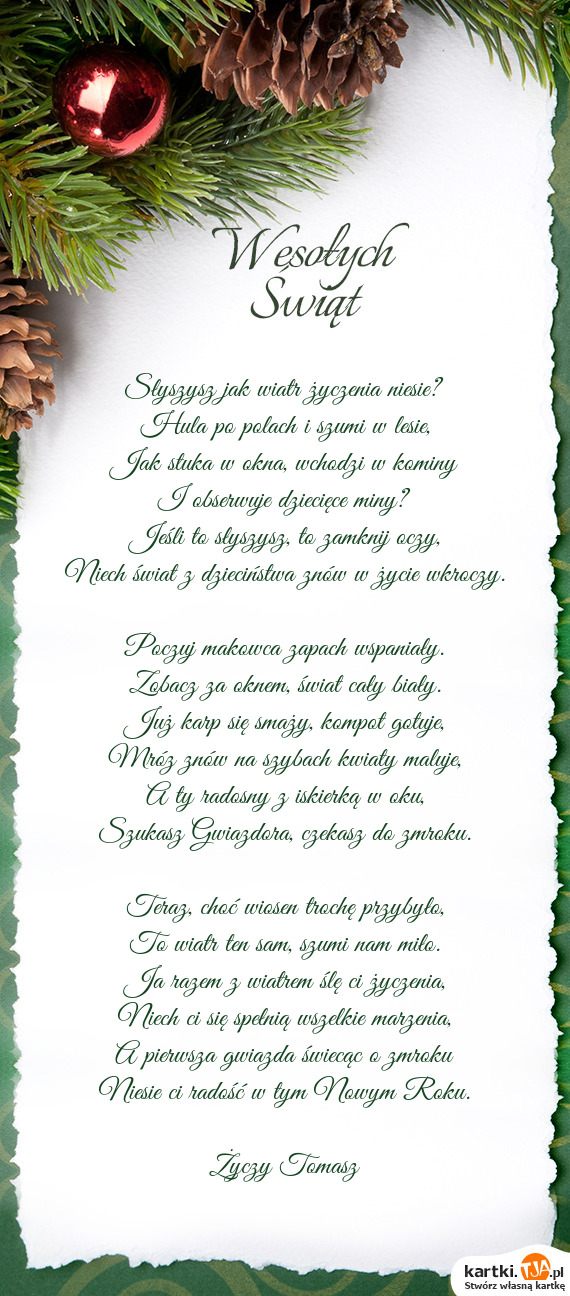 Wesołych
Świąt
Słyszysz jak wiatr życzenia niesie?
Hula po polach i szumi w lesie,
Jak stuka w okna, wchodzi w kominy
I obserwuje dziecięce miny?
Jeśli to słyszysz, to zamknij oczy,
Niech świat z dzieciństwa znów w życie wkroczy.
Poczuj makowca zapach wspaniały.
Zobacz za oknem, świat cały biały.
Już karp się smaży, kompot gotuje,
Mróz znów na szybach kwiaty maluje,
A ty radosny z iskierką w oku,
Szukasz Gwiazdora, czekasz do zmroku.
Teraz, choć wiosen trochę przybyło,
To wiatr ten sam, szumi nam miło.
Ja razem z wiatrem ślę ci życzenia,
Niech ci się spełnią wszelkie marzenia,
A pierwsza gwiazda świecąc o zmroku
Niesie ci radość w tym Nowym Roku.
Życzy Tomasz
kartki.TJA.pl
Stwórz własną kartkę